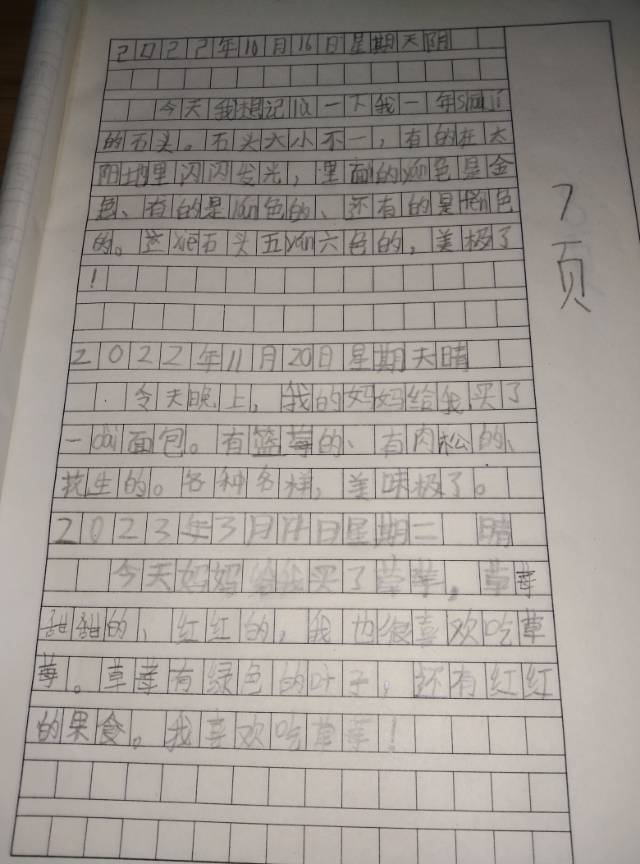 2022年10月16日星期天阴
今天我想记lù一下我一年
的石头。石头大小不一，有的在太
阳地里闪闪发光，里面的yán色是金
色、有的是lán色的、还有的是色
的。这xiē石头五yán六色的，美极了
！
2022年11月20日星期天晴
今天晚上，我的妈妈给我买了
一dài面包。有篮莓的、有肉松的、
花生的。各种各样，美味极了。
2023年3月14日星期二 晴
今天妈妈给我买了草莓，草莓
甜甜的、红红的，我也很喜欢吃草
莓。草莓有绿色的叶子，还有红红
的果食。我喜欢吃草莓！
7页